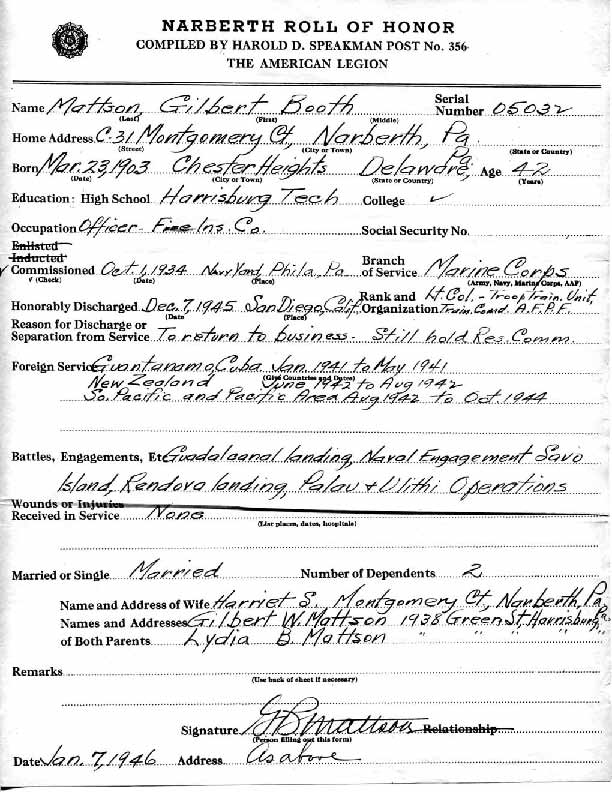 NARBERTH ROLL OF HONOR
COMPILED BY HAROLD D. SPEAKMAN POST No. 356
THE AMERICAN LEGION
Name Mattson, Gilbert Booth Serial Number 05032
(Last) (First) (Middle)
Home Address C-31 Montgomery Ct, Narberth, Pa.
(Street) (City or Town) (State or Country)
Born Mar. 23, 1903 Chester Heights Delaware, Pa. Age 42
(Date) (City or Town) (State or Country) (Years)
Education: High School Harrisburg Tech College ✓
Occupation Officer - Fire Ins. Co. Social Security No.
Enlisted
Inducted
✓ Commissioned Oct. 1, 1934 Navy Yard, Phila, Pa. Branch of Service Marine Corps
(Check) (Date) (Place) (Army, Navy, Marine Corps, AAF)
Honorably Discharged Dec. 7, 1945 San Diego, Calif. Rank and Organization Lt. Col. - Troop Train. Unit, Train. Comd. A.F.P.F.
(Date) (Place)
Reason for Discharge or
Separation from Service To return to business. Still hold Res. Comm.
Foreign Service Guantanamo, Cuba Jan. 1941 to May 1941
(Give Countries and Dates)
New Zealand June 1942 to Aug 1942
So. Pacific and Pacific Area Aug 1942 to Oct 1944
Battles, Engagements, Etc Guadalcanal landing, Naval Engagement Savo
Island, Rendova landing, Palau + Ulithi Operations
Wounds or Injuries
Received in Service None
(List places, dates, hospitals)
Married or Single Married Number of Dependents 2
Name and Address of Wife Harriet S. Montgomery Ct, Narberth, Pa
Names and Addresses Gilbert W. Mattson 1938 Green St, Harrisburg, Pa.
of Both Parents Lydia B. Mattson " " "
Remarks
(Use back of sheet if necessary)
Signature G B Mattson Relationship
(Person filling out this form)
Date Jan. 7, 1946 Address As above